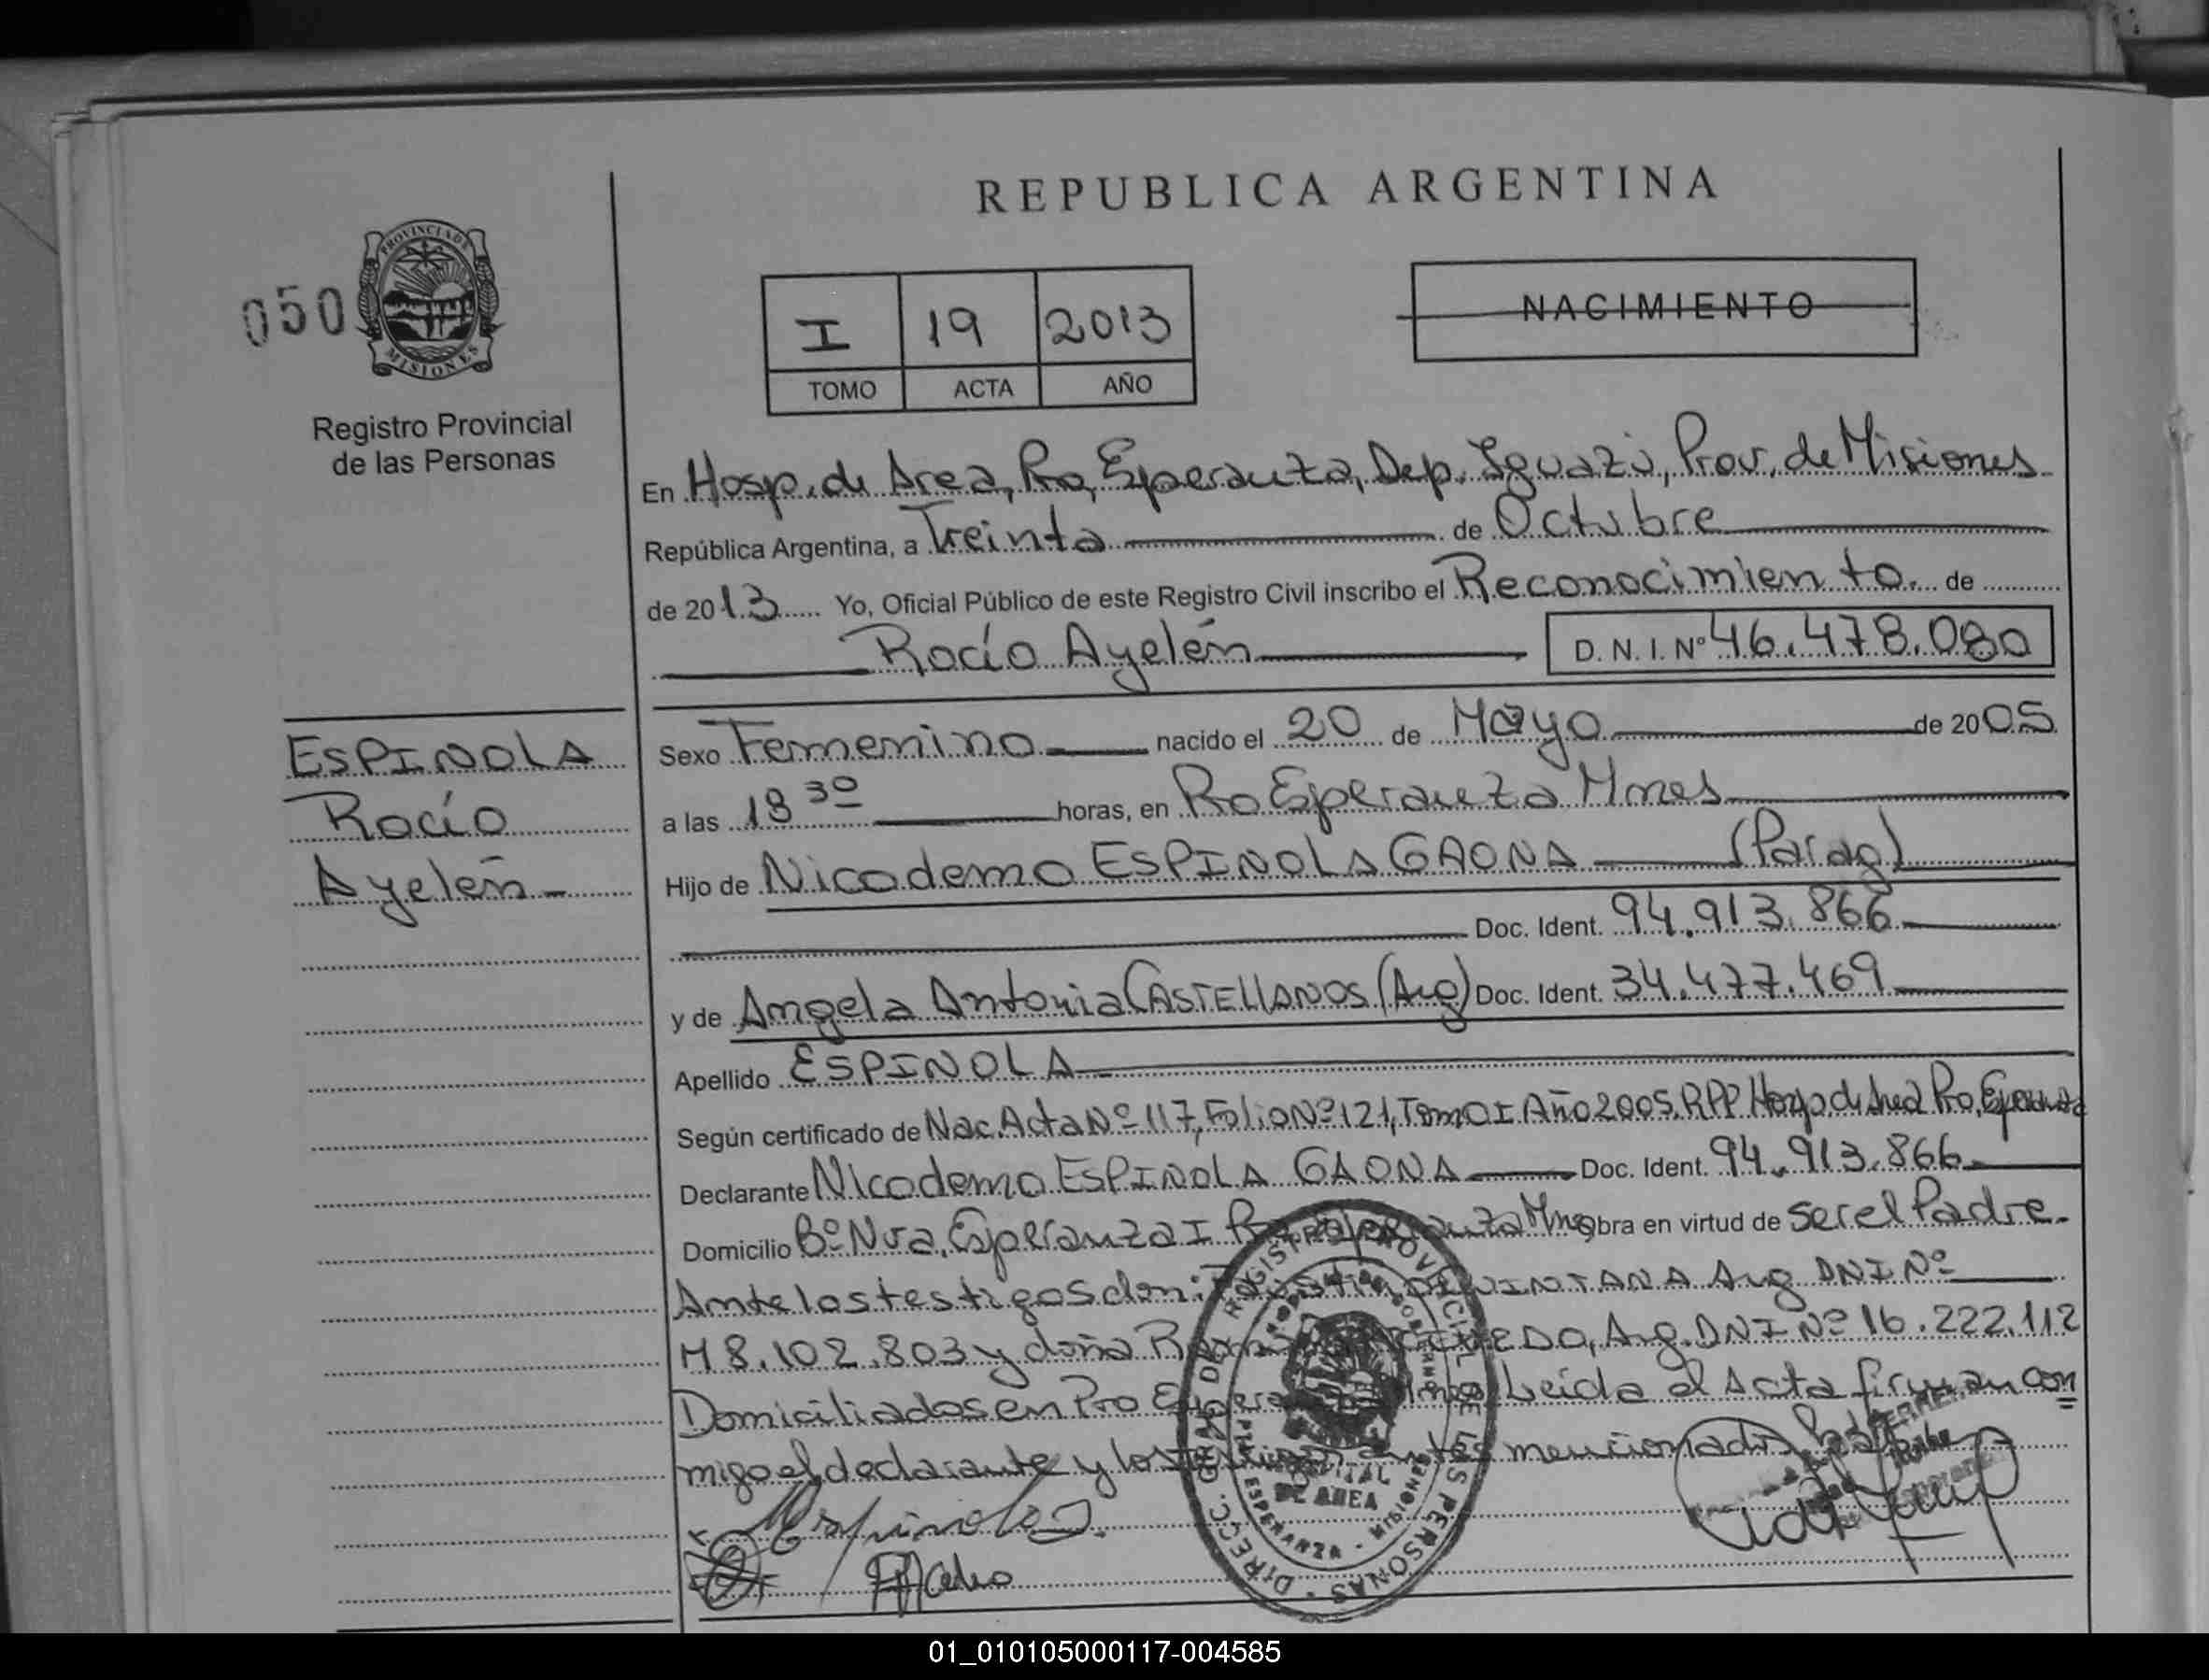 REPUBLICA ARGENTINA
050
PROVINCIA DE
MISIONES
Registro Provincial
de las Personas
I 19 2013
TOMO ACTA AÑO
NACIMIENTO
En Hosp. de Area, Pto, Esperanza, Dep. Iguazú, Prov. de Misiones
República Argentina, a Treinta de Octubre
de 2013 Yo, Oficial Público de este Registro Civil inscribo el Reconocimiento. de
Rocío Ayelén D. N. I. Nº 46.478.080
ESPINOLA
Rocío
Ayelén -
Sexo Femenino nacido el 20 de Mayo de 2005
a las 18 30 horas, en Pto Esperanza Mnes
Hijo de Nicodemo ESPINOLA GAONA (Parag)
Doc. Ident. 94.913.866
y de Angela Antonia CASTELLANOS (Arg) Doc. Ident. 34.477.469
Apellido ESPINOLA
Según certificado de Nac. Acta Nº 117, Folio Nº 121, Tomo I Año 2005. RPP Hosp de Area Pto, Esperanza
Declarante Nicodemo ESPINOLA GAONA Doc. Ident. 94.913.866
Domicilio Bº Nva. Esperanza I Pto Esperanza Mnes obra en virtud de ser el Padre.
Ante los testigos don: QUINTANA Arg DNI Nº
M 8.102.803 y doña Arg. DNI Nº 16.222.112
Domiciliados en Pto Esperanza Mnes Leída el Acta firman con
migo el declarante y los testigos antes mencionados
Espinola
DIRECC. GRAL DE REGISTRO PROVINCIAL DE LAS PERSONAS
HOSPITAL
DE AREA
ESPERANZA - MISIONES
01_010105000117-004585